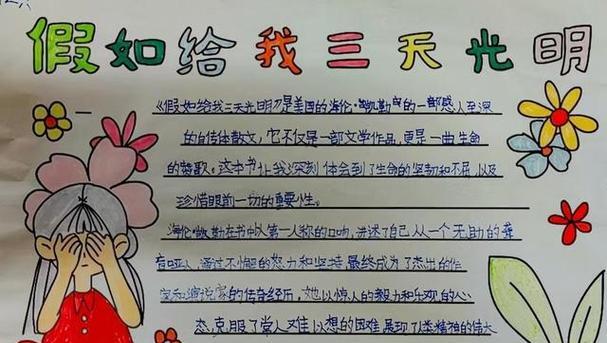 假如给我三天光明
《假如给我三天光明》是美国的海伦·凯勒写的一部感人至深
的自传体散文，它不仅是一部文学作品，更是一曲生命
的赞歌。这本书让我深刻体会到了生命的坚韧和不屈，以及
珍惜眼前一切的重要性。
海伦·凯勒在书中以第一人称的口吻，讲述了自己从一个无助的聋
盲哑人，通过不懈的努力和坚持，最终成为了杰出的作
家和演说家的传奇经历，她以惊人的毅力和乐观的心
态，克服了常人难以想的困难，展现了人类精神的伟大